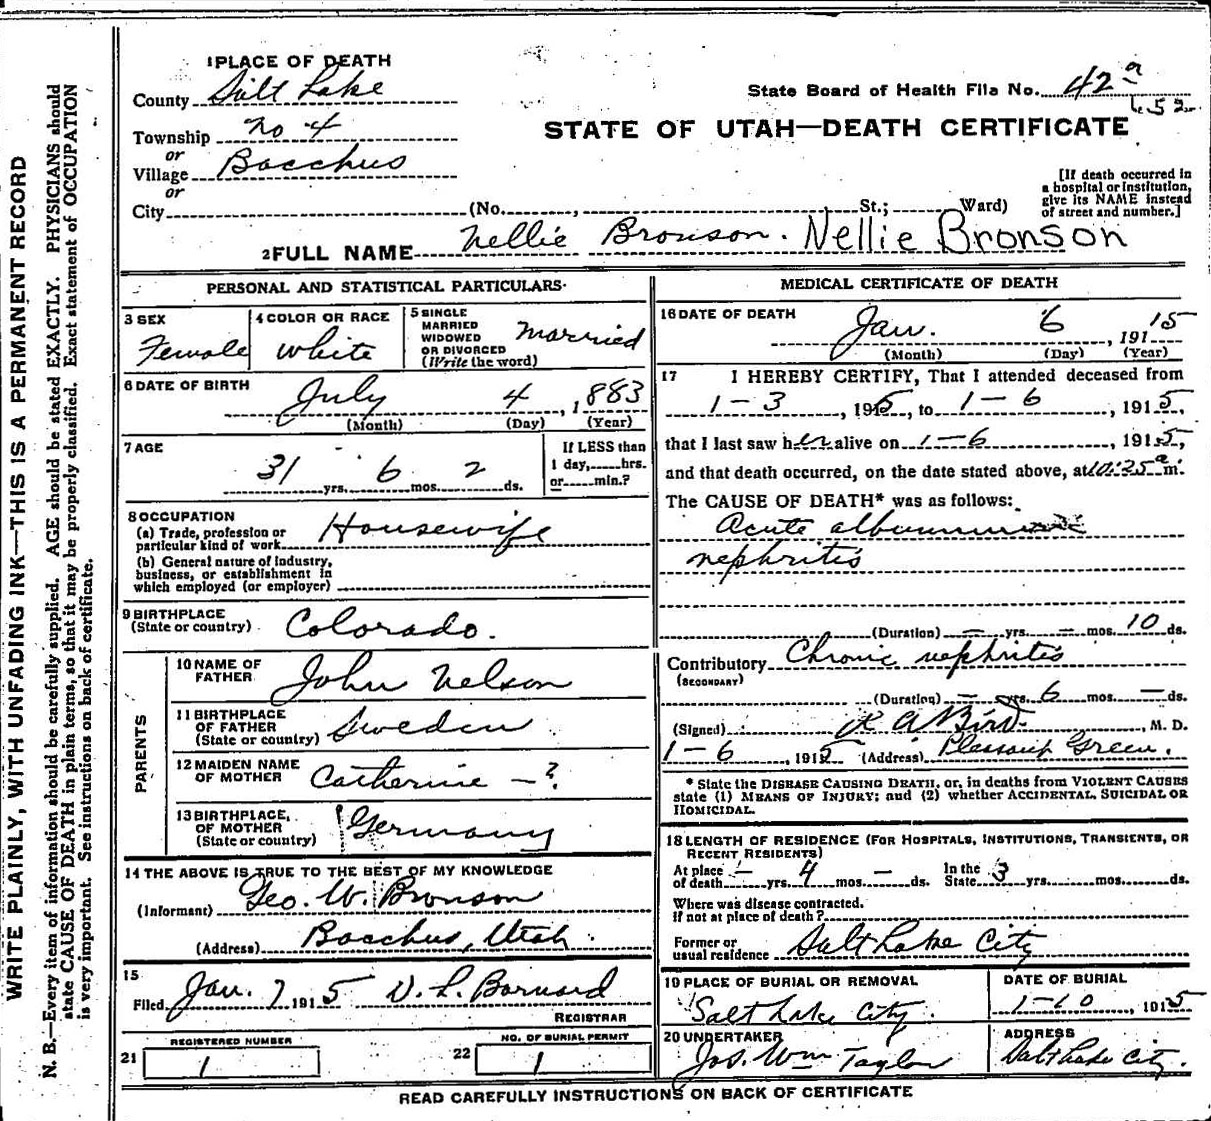 WRITE PLAINLY, WITH UNFADING INK—THIS IS A PERMANENT RECORD
N. B.—Every item of information should be carefully supplied. AGE should be stated EXACTLY. PHYSICIANS should
state CAUSE OF DEATH in plain terms, so that it may be properly classified. Exact statement of OCCUPATION
is very important. See instructions on back of certificate.
1 PLACE OF DEATH
County Salt Lake
Township No 4
or
Village Bacchus
or
City (No. , St.; Ward)
State Board of Health File No. 42 a
652
STATE OF UTAH—DEATH CERTIFICATE
[If death occurred in
a hospital or institution,
give its NAME instead
of street and number.]
2 FULL NAME Nellie Bronson. Nellie Bronson
PERSONAL AND STATISTICAL PARTICULARS
3 SEX
Female
4 COLOR OR RACE
White
5 SINGLE
MARRIED
WIDOWED
OR DIVORCED
(Write the word)
Married
6 DATE OF BIRTH
July 4, 1883
(Month) (Day) (Year)
7 AGE
31 yrs. 6 mos. 2 ds.
If LESS than
1 day, hrs.
or min.?
8 OCCUPATION
(a) Trade, profession or
particular kind of work Housewife
(b) General nature of industry,
business, or establishment in
which employed (or employer)
9 BIRTHPLACE
(State or country) Colorado.
PARENTS
10 NAME OF
FATHER John Nelson
11 BIRTHPLACE
OF FATHER
(State or country) Sweden
12 MAIDEN NAME
OF MOTHER Catherine — ?
13 BIRTHPLACE,
OF MOTHER
(State or country) Germany
14 THE ABOVE IS TRUE TO THE BEST OF MY KNOWLEDGE
(Informant) Geo. W. Bronson
(Address) Bacchus, Utah
15
Filed Jan. 7, 1915 D. L. Barnard
REGISTRAR
21
REGISTERED NUMBER
1
22
NO. OF BURIAL PERMIT
1
MEDICAL CERTIFICATE OF DEATH
16 DATE OF DEATH
Jan. 6, 1915
(Month) (Day) (Year)
17 I HEREBY CERTIFY, That I attended deceased from
1-3, 1915, to 1-6, 1915,
that I last saw her alive on 1-6, 1915,
and that death occurred, on the date stated above, at 10:35 a m.
The CAUSE OF DEATH* was as follows:
Acute
nephritis
(Duration) — yrs. — mos. 10 ds.
Contributory Chronic nephritis
(SECONDARY)
(Duration) — yrs. 6 mos. — ds.
(Signed) A Bird, M. D.
1-6, 1915 (Address) Pleasant Green.
* State the DISEASE CAUSING DEATH, or, in deaths from VIOLENT CAUSES
state (1) MEANS OF INJURY; and (2) whether ACCIDENTAL, SUICIDAL OR
HOMICIDAL.
18 LENGTH OF RESIDENCE (FOR HOSPITALS, INSTITUTIONS, TRANSIENTS, OR
RECENT RESIDENTS)
At place
of death — yrs. 4 mos. — ds.
In the
State 3 yrs. mos. ds.
Where was disease contracted.
If not at place of death?
Former or
usual residence Salt Lake City
19 PLACE OF BURIAL OR REMOVAL
Salt Lake City.
DATE OF BURIAL
1-10, 1915
20 UNDERTAKER
Jos. Wm Taylor
ADDRESS
Salt Lake City.
READ CAREFULLY INSTRUCTIONS ON BACK OF CERTIFICATE